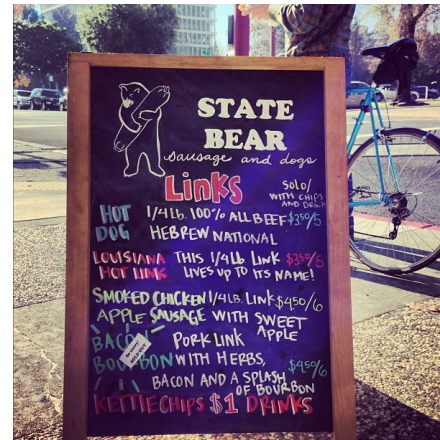 STATE
BEAR
sausage and dogs
Links
SOLO/
WITH CHIPS
AND DRINK
HOT 1/4 Lb. 100% ALL BEEF $3.50/5
DOG HEBREW NATIONAL
LOUISIANA THIS 1/4 Lb LINK $3.50/5
HOT LINK LIVES UP TO ITS NAME!
SMOKED CHICKEN 1/4 LB. LINK $4.50/6
APPLE SAUSAGE WITH SWEET
APPLE
BACON PORK LINK
BOURBON WITH HERBS, $4.50/6
BACON AND A SPLASH
OF BOURBON
KETTLE CHIPS $1 DRINKS